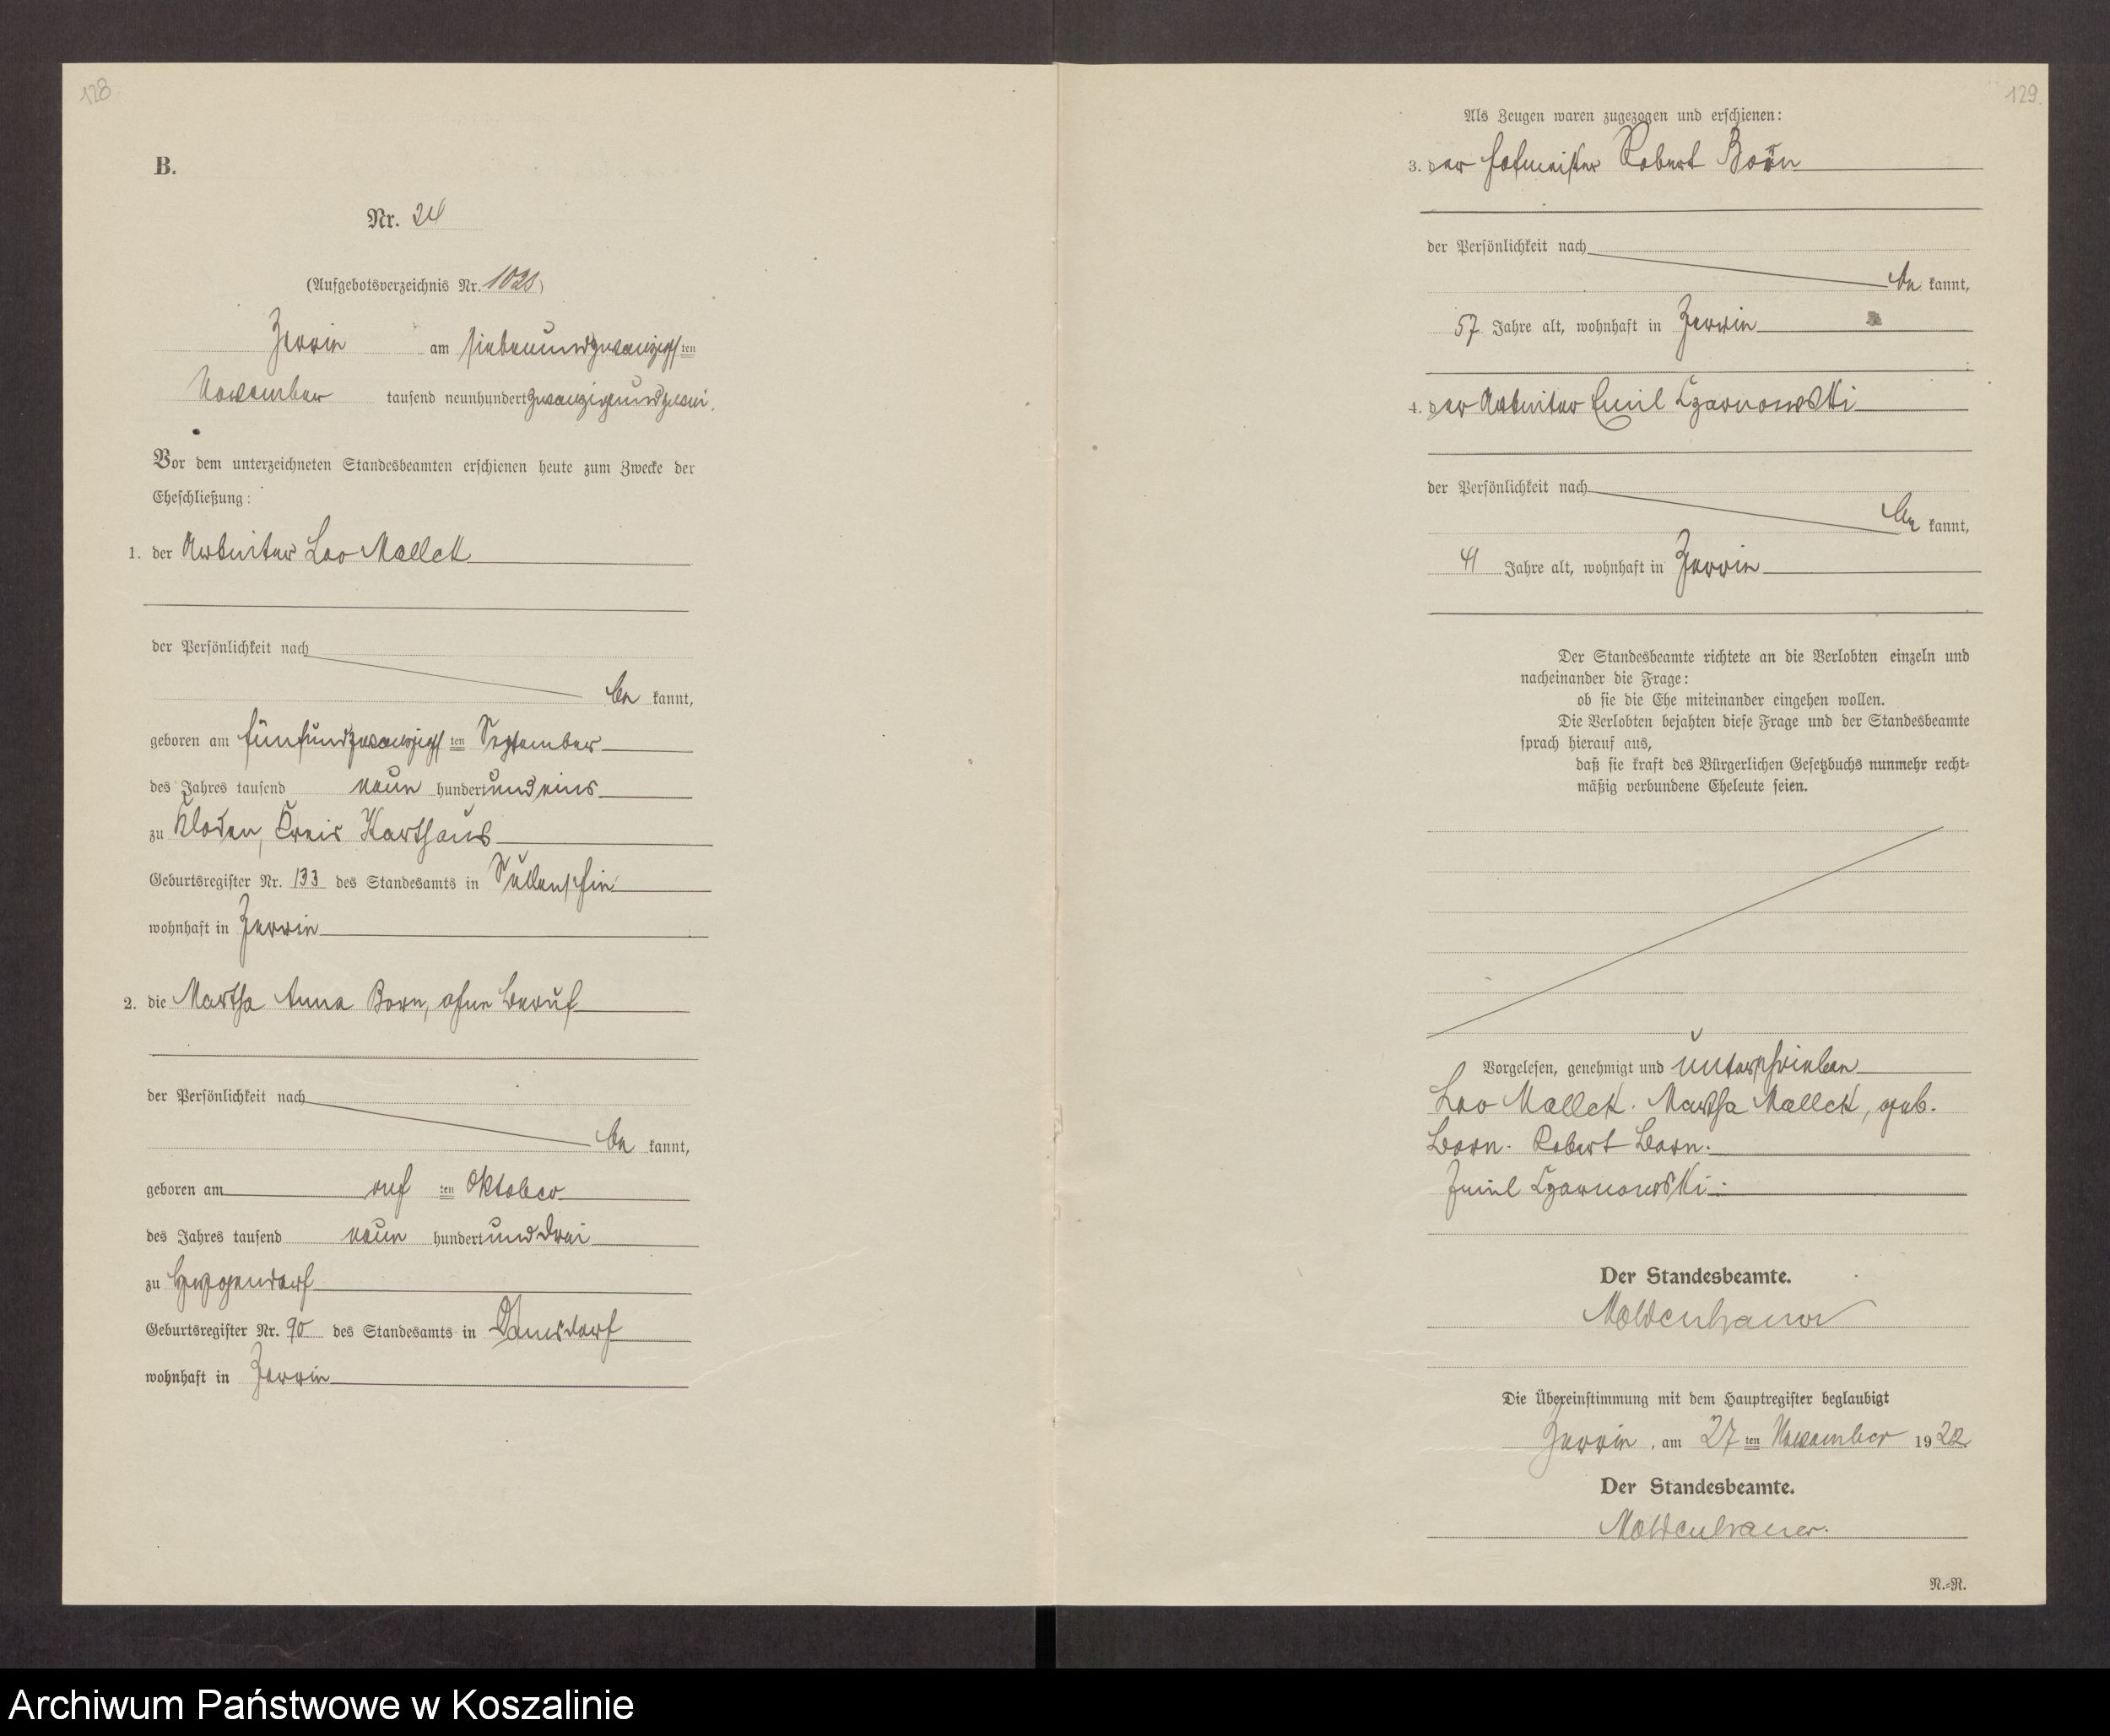 128
B.
Nr. 24
(Aufgebotsverzeichnis Nr.
Zerrin am siebenundzwanzigsten
November tausend neunhundertzwanzigundzwei.
Vor dem unterzeichneten Standesbeamten erschienen heute zum Zwecke der
Eheschließung:
1. der Arbeiter Leo Mallek
der Persönlichkeit nach
be kannt,
geboren am fünfundzwanzigsten September
des Jahres tausend neun hundertundeins
zu Kloden, Kreis Karthaus
Geburtsregister Nr. 133 des Standesamts in Sullenschin
wohnhaft in Zerrin
2. die Martha Anna Born, ohne Beruf
der Persönlichkeit nach
be kannt,
geboren am ten Oktober
des Jahres tausend neun hundertunddrei
zu
Geburtsregister Nr. 90 des Standesamts in Damsdorf
wohnhaft in Zerrin
129.
Als Zeugen waren zugezogen und erschienen:
3. der Hofmeister Robert Born
der Persönlichkeit nach
be kannt,
57 Jahre alt, wohnhaft in Zerrin
4. der Arbeiter Emil Czarnowski
der Persönlichkeit nach
be kannt,
41 Jahre alt, wohnhaft in Zerrin
Der Standesbeamte richtete an die Verlobten einzeln und
nacheinander die Frage:
ob sie die Ehe miteinander eingehen wollen.
Die Verlobten bejahten diese Frage und der Standesbeamte
sprach hierauf aus,
daß sie kraft des Bürgerlichen Gesetzbuchs nunmehr recht-
mäßig verbundene Eheleute seien.
Vorgelesen, genehmigt und unterschrieben
Leo Mallek. Martha Mallek, geb.
Born. Robert Born.
Emil Czarnowski.
Der Standesbeamte.
Moldenhauer
Die Übereinstimmung mit dem Hauptregister beglaubigt
Zerrin, am 27ten November 1922.
Der Standesbeamte.
Moldenhauer.
N.-R.
Archiwum Państwowe w Koszalinie